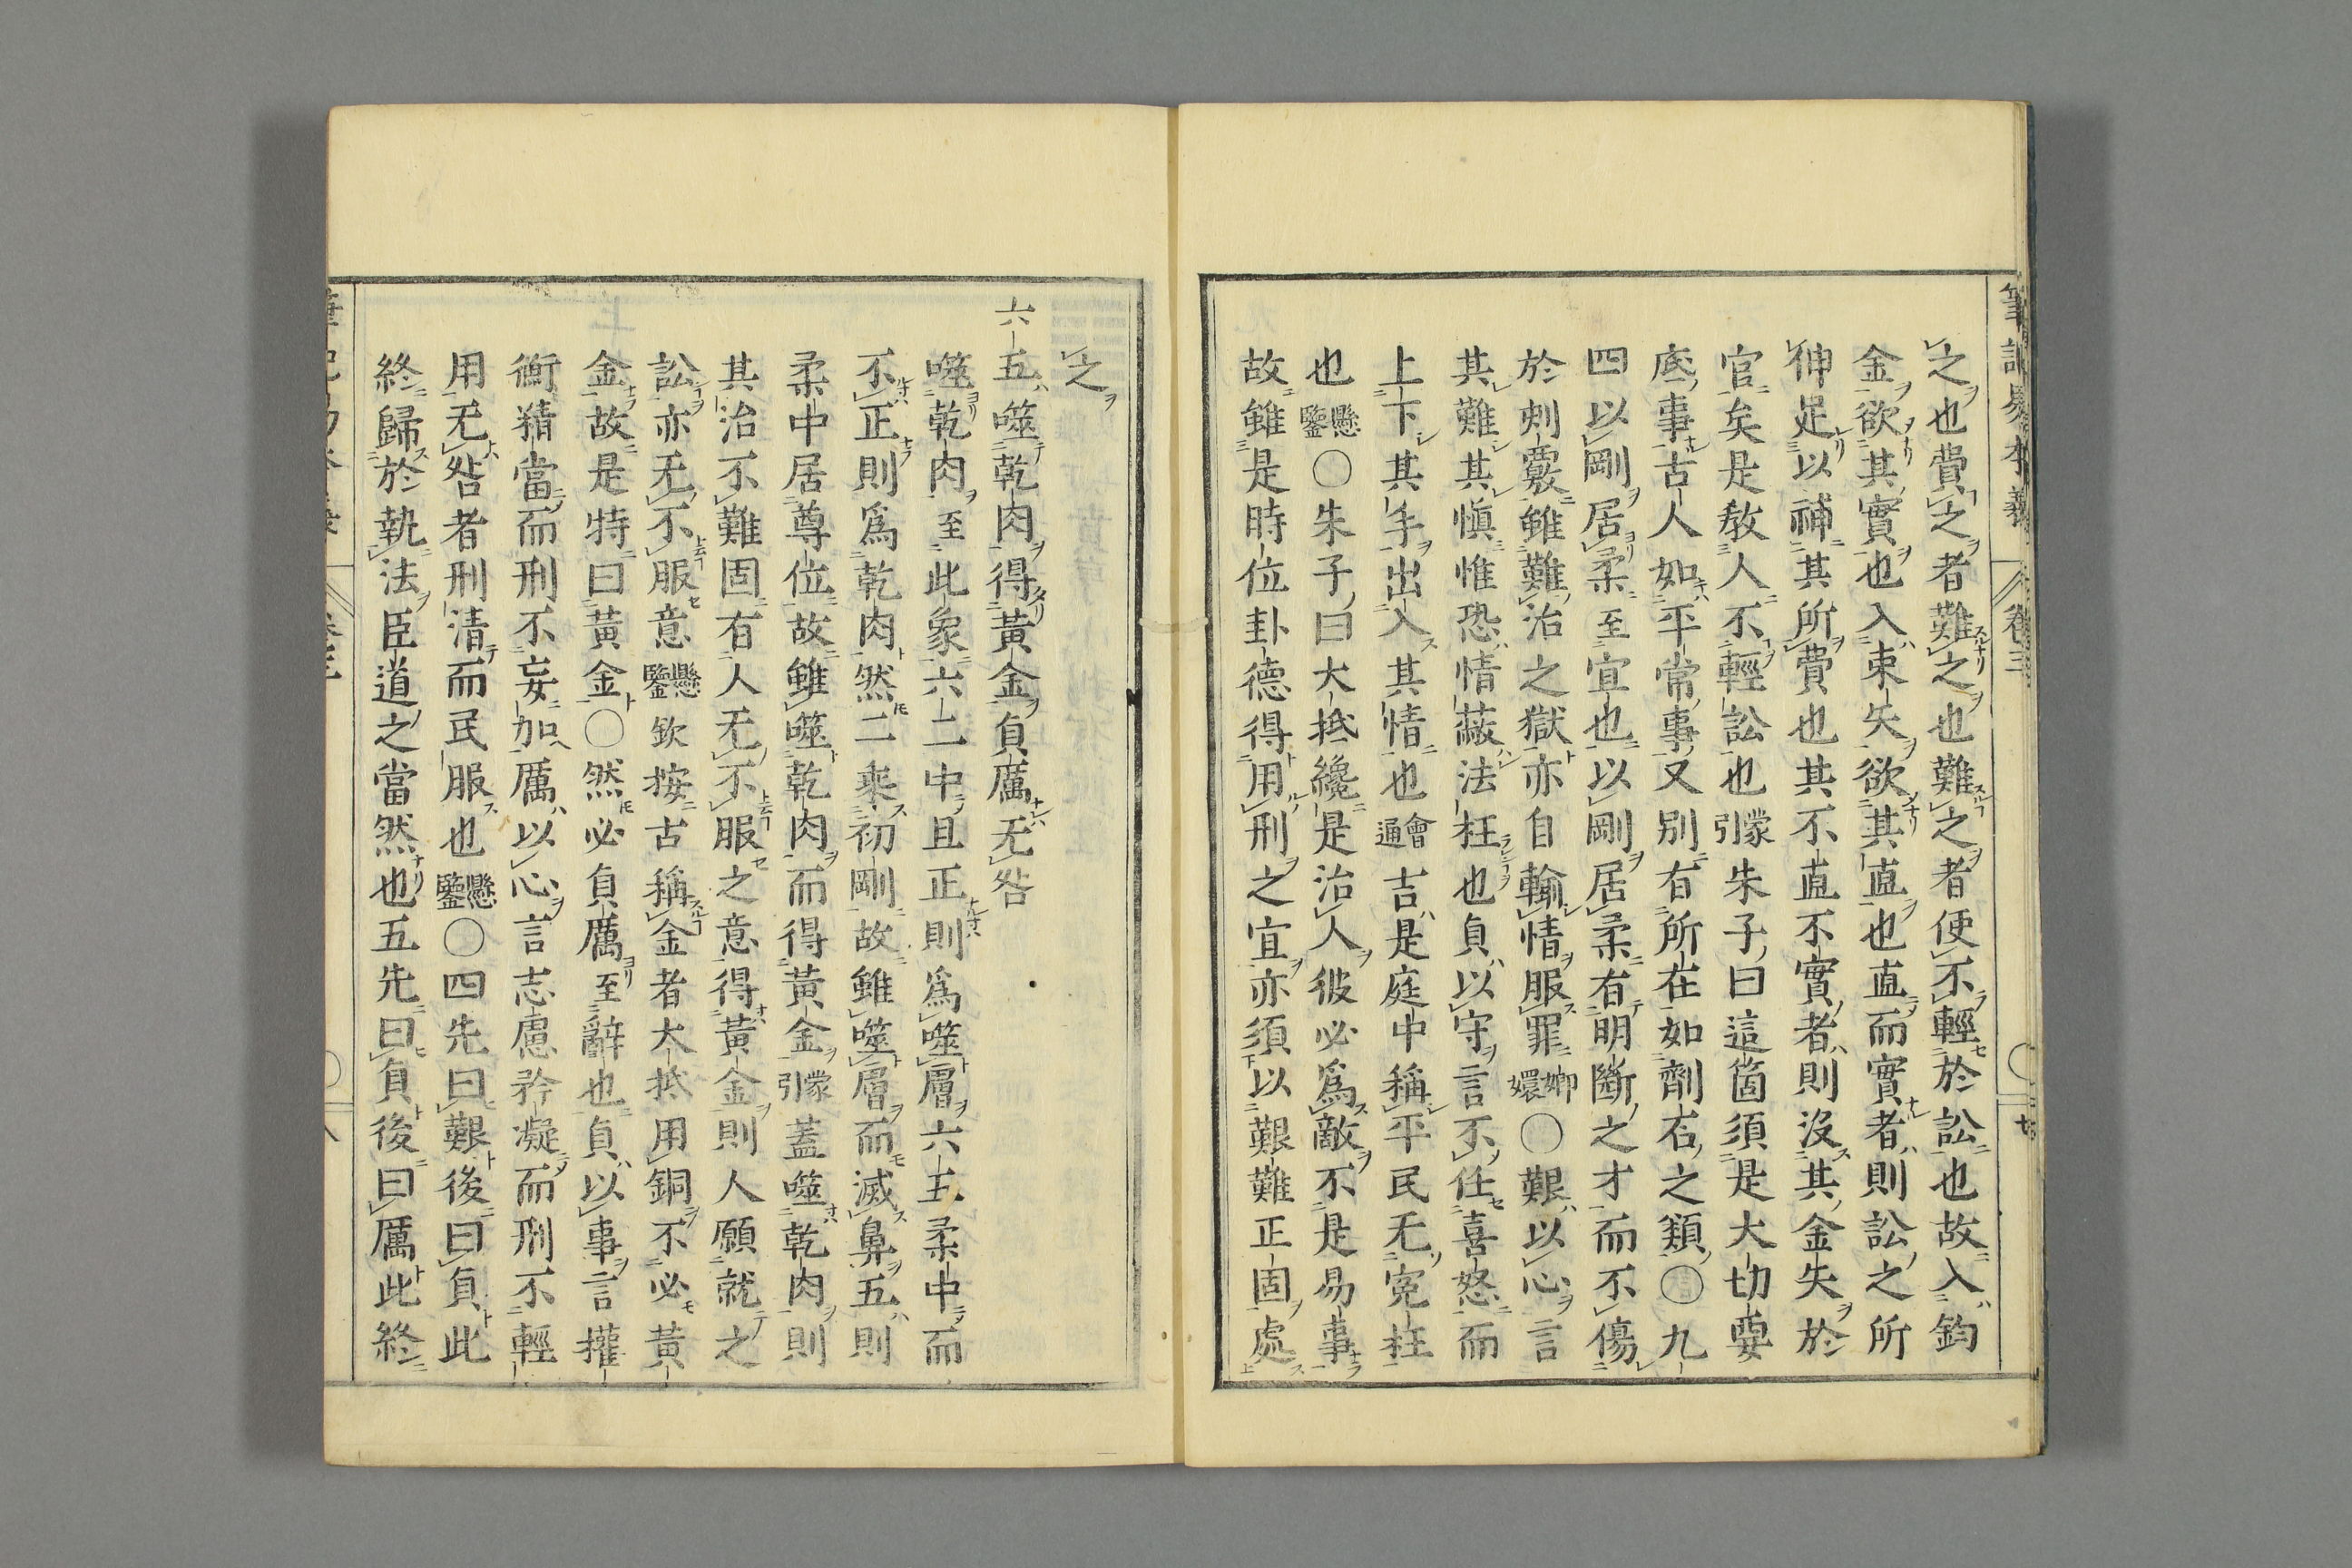 筆記易本義 卷三
之也費之者難之也難之者便不輕於訟也故入鈞
金欲其實也入束矢欲其直也直而實者則訟之所
伸足以補其所費也其不直不實者則沒其金矢於
官矣是教人不輕訟也蒙引朱子曰這箇須是大切要
底事古人如平常事又別有所在如劑右之類〇九
四以剛居柔至宜也以剛居柔有明斷之才而不傷
於刻覈雖難治之獄亦自輸情服罪嫏嬛〇艱以心言
其難其愼惟恐情蔽法枉也貞以守言不任喜怒而
上下其手出入其情也會通吉是庭中稱平民无寃枉
也懸鑒〇朱子曰大抵纔是治人彼必爲敵不是易事
故雖是時位卦德得用刑之宜亦須以艱難正固處
之
六五噬乾肉得黃金貞厲无咎
噬乾肉至此象六二中且正則爲噬膚六五柔中而
不正則爲乾肉然二乘初剛故雖噬膚而滅鼻五則
柔中居尊位故雖噬乾肉而得黃金蒙引蓋噬乾肉則
其治不難固有人无不服之意得黃金則人願就之
訟亦无不服意懸鑒欽按古稱金者大抵用銅不必黃
金故是特曰黃金〇然必貞厲至辭也貞以事言權
衡精當而刑不妄加厲以心言志慮矜凝而刑不輕
用无咎者刑清而民服也懸鑒〇四先曰艱後曰貞此
終歸於執法臣道之當然也五先曰貞後曰厲此終